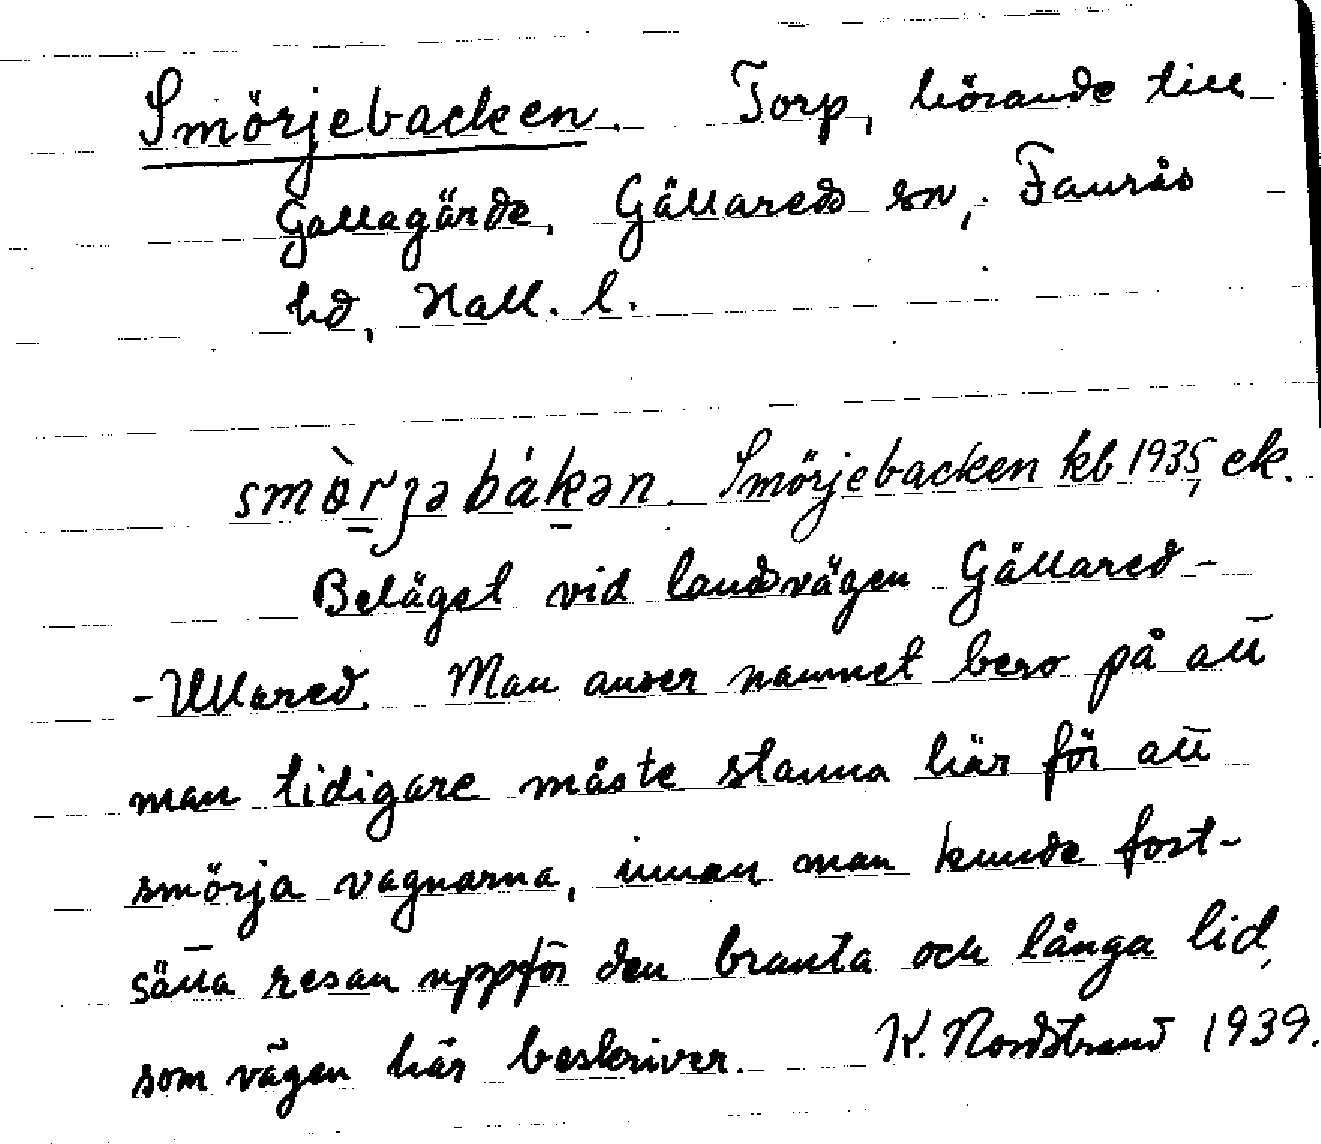 Smörjebacken. Torp, hörande till
Gällagärde, Gällareds sn, Faurås
hd, Hall. l.
smòr̲ɟəbák̲ən. Smörjebacken kb 1935, ek.
Beläget vid landsvägen Gällared-
-Ullared. Man anser namnet bero på att
man tidigare måste stanna här för att
smörja vagnarna, innan man kunde fort-
sätta resan uppför den branta och långa lid,
som vägen här beskriver. K. Nordstrand 1939.